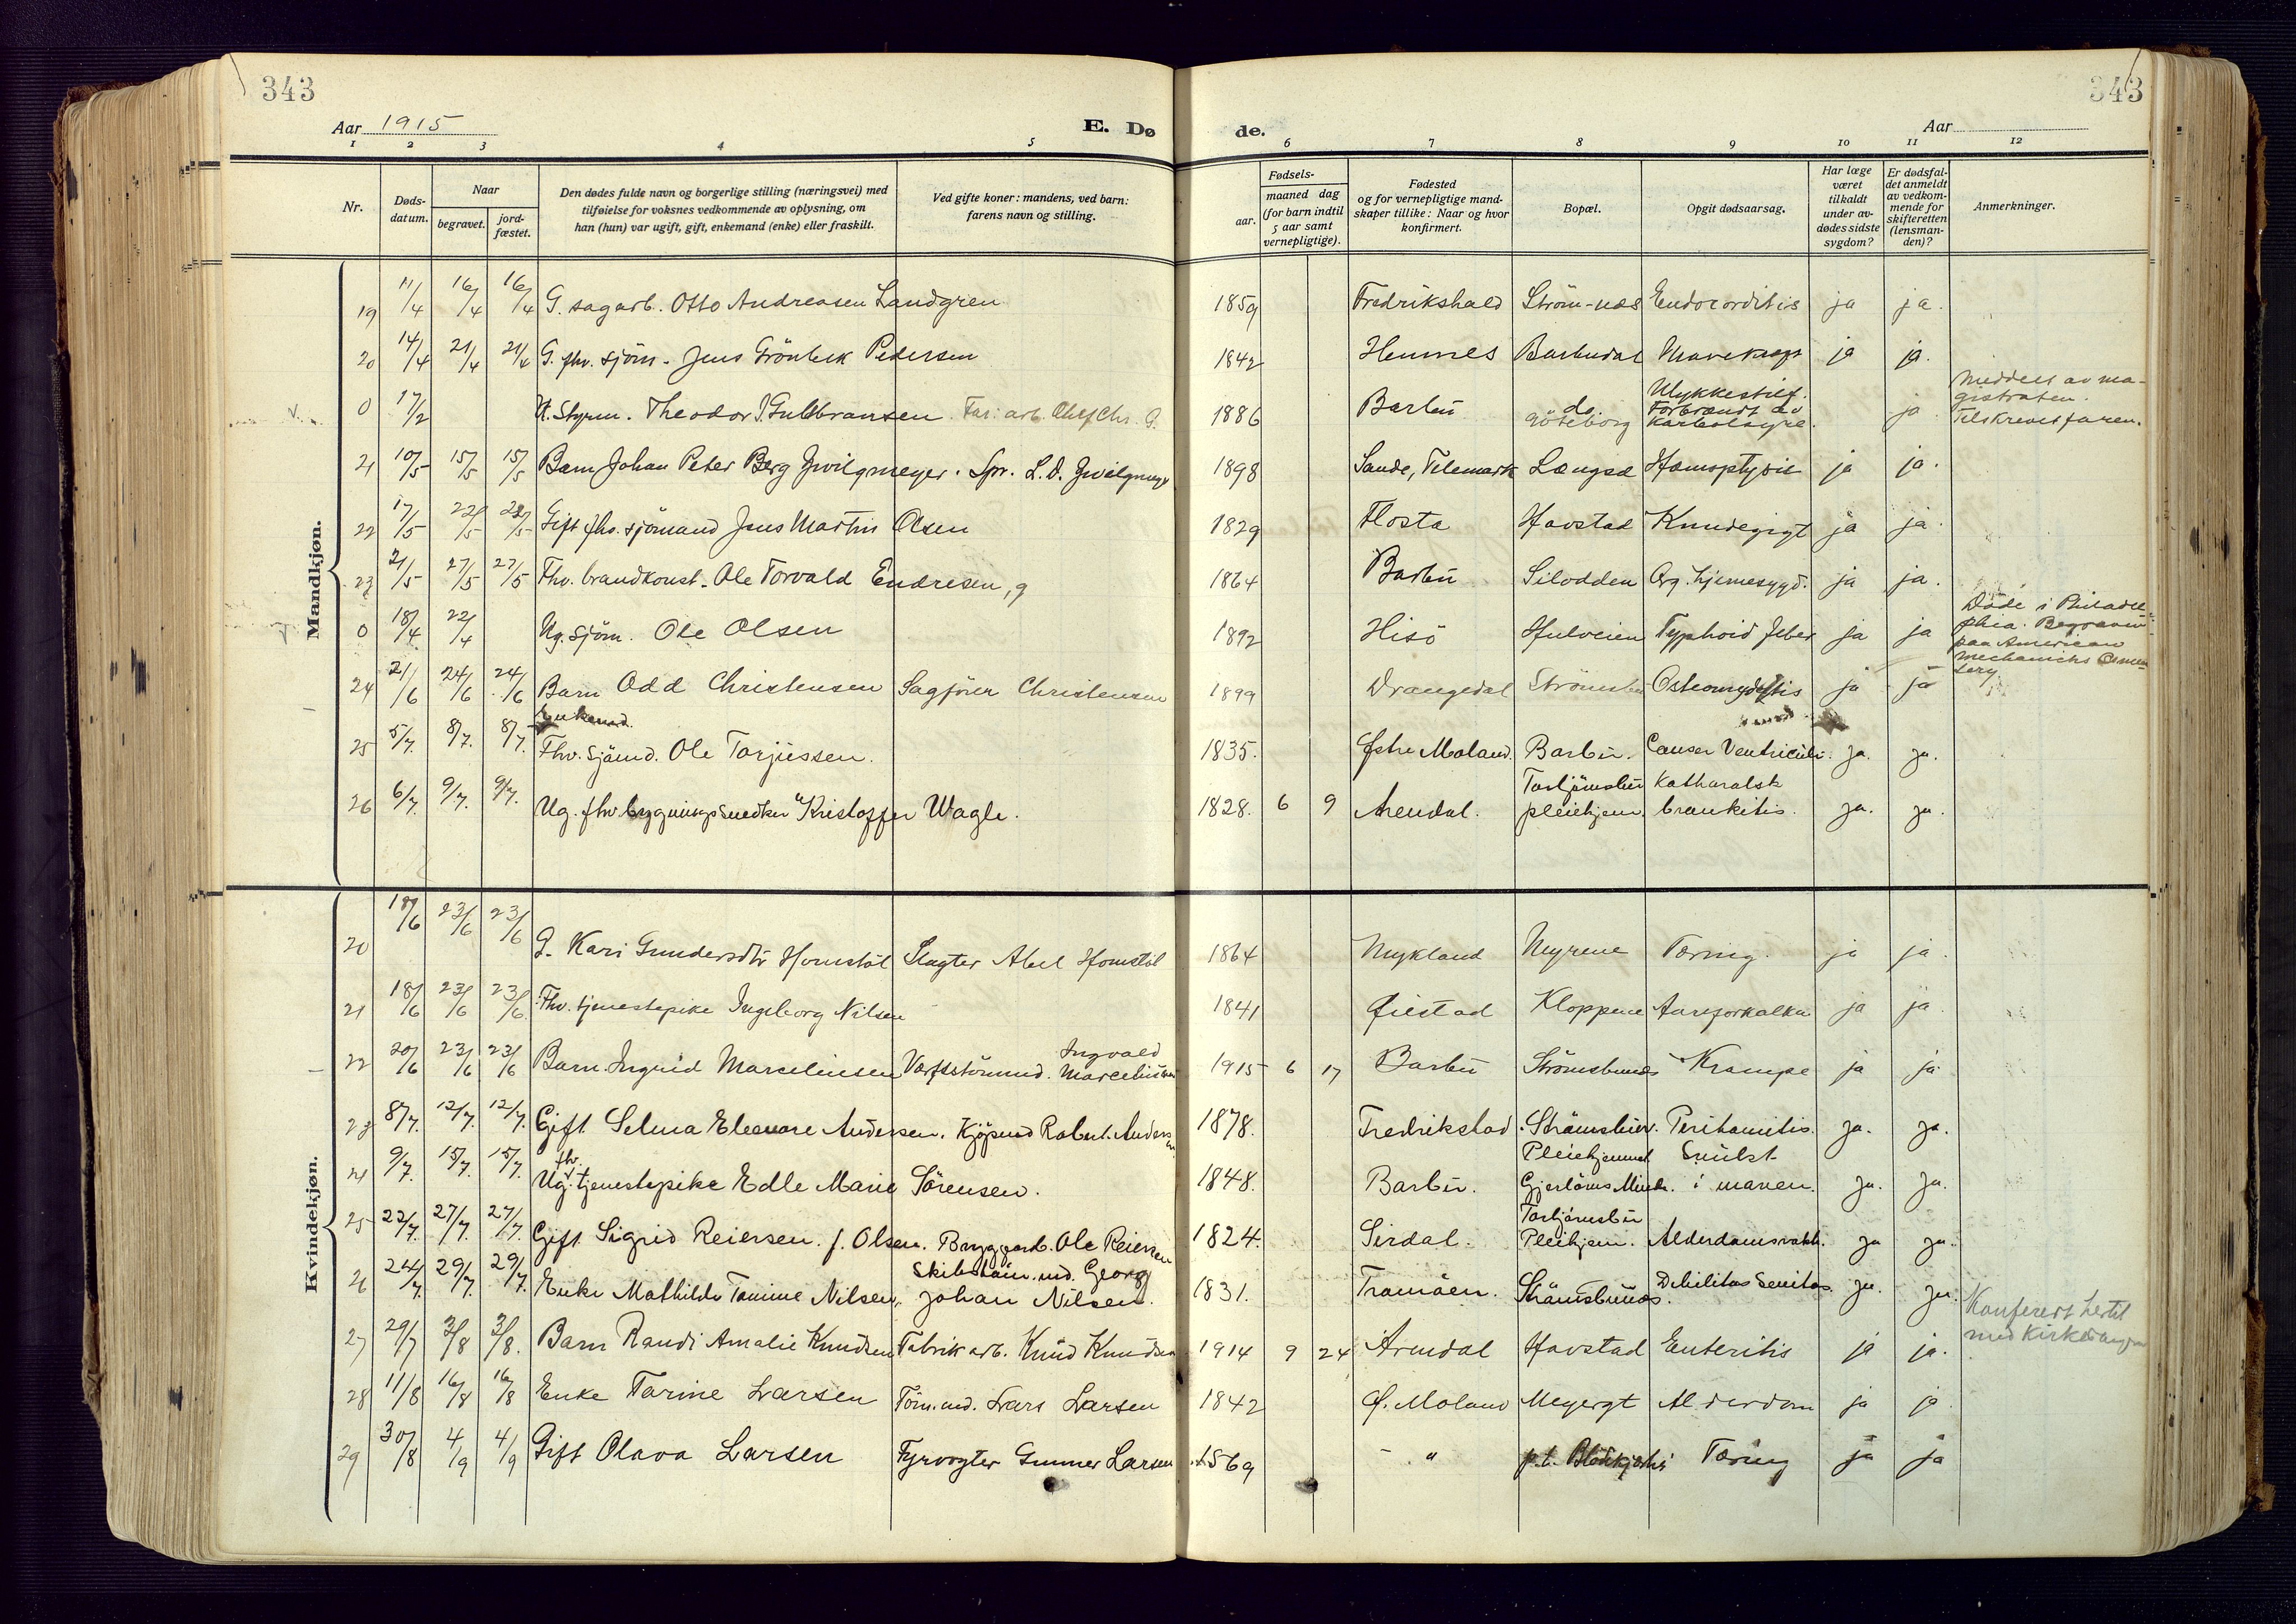 343
343
Aar 1915
E. Dø
de.
Aar
1 2 3 4 5 6 7 8 9 10 11 12
Nr.
Døds-
datum.
Naar
begravet.
jord-
fæstet.
Den dødes fulde navn og borgerlige stilling (næringsvei) med
tilføielse for voksnes vedkommende av oplysning, om
han (hun) var ugift, gift, enkemand (enke) eller fraskilt.
Ved gifte koner: mandens, ved barn:
farens navn og stilling.
Fødsels-
aar.
maaned dag
(for barn indtil
5 aar samt
vernepligtige).
Fødested
og for vernepligtige mand-
skaper tillike: Naar og hvor
konfirmert.
Bopæl.
Opgit dødsaarsag.
Har læge
været
tilkaldt
under av-
dødes sidste
sygdom?
Er dødsfal-
det anmeldt
av vedkom-
mende for
skifteretten
(lensman-
den)?
Anmerkninger.
Mandkjøn.
19 11/4 16/4 16/4 G. sagarb. Otto Andreasen Landgren 1859 Fredrikshald Ström-næs Endocorditis ja ja.
20 14/4 21/4 21/4 G. fhv. sjöm. Jens Grönbek Pedersen 1842 Hennes Barbudal ja ja.
0 17/2 U. Styrm. Theodor J. Guldbransen Far: arb. Chr. G. 1886 Barbu do. göteborg Ulykkestilf. Forbrændt av karbolsyre. ja
Meddelt av ma-
gistraten.
Tilskrevet faren.
21 10/5 15/5 15/5 Barn Johan Peter Berg Zwilgmeyer. Spr. L. D. Zwilgmeyr 1898 Sande, Telemark Længsæ Hæmoptysis ja ja.
22 17/5 22/5 22/5 Gift fhv. sjömand Jens Martin Olsen 1829 Flosta Havstad Knudegigt ja ja.
23 21/5 27/5 27/5 Fhv. brandkonst. Ole Torvald Endresen, g 1864 Barbu Silodden Org. hjernesygd. ja ja.
0 18/4 22/4 Ug. sjöm. Ole Olsen 1892 Hisö Hulveien Typhoid feber ja ja
Döde i Philadel-
phia. Begraven
paa American
mechanichs Ceme-
tery
24 21/6 24/6 24/6 Barn Odd Christensen Sagförer Christensen 1899 Drangedal Strömsbu Osteomyelitis ja ja
25 5/7. 8/7. 8/7. Enkemd. Fhv. Sjömd. Ole Torjussen. 1835. Østre Moland. Barbu. Canser Ventriculi. ja. ja.
26 6/7. 9/7. 9/7. Ug. fhv. bygningssnedker Kristoffer Wagle. 1828. 6 9 Arendal. Torbjörnsbu pleiehjem. Katharalsk brankitis. ja. ja.
Kvindekjøn.
20 18/6 23/6 23/6 G. Kari Gundersdtr Homstöl Slagter Abel Homstöl 1864 Mykland Myrene Tæring. ja ja.
21 18/6 23/6 23/6. Fhv. tjenestepike Ingeborg Nilsen 1841 Øiestad Kloppene Aareforkalkn ja ja.
22 20/6 23/6 23/6 Barn. Ingrid Marcelinsen Værftstömmd. Ingvald Marcelinsen 1915 6 17 Barbu Strömsbunæs Krampe ja ja.
23 8/7. 12/7. 12/7. Gift Selma Eleonore Andersen. Kjöpmd Robert. Andersen 1878. Fredrikstad. Strömsbu. Peritonitis. ja. ja.
24 9/7. 15/7. 15/7. Ug. fhv. tjenestepike Edle Marie Sörensen. 1848. Barbu. Pleiehjemmet Gjerlöws Minde. Svulst i maven. ja. ja.
25 22/7. 27/7. 27/7. Gift Sigrid Reiersen. f. Olsen. Bryggearb. Ole Reiersen 1824. Sirdal. Torbjörnsbu Pleiehjem. Alderdomssvakh. ja ja.
26 24/7. 29/7. 29/7. Enke Mathilde Tomine Nilsen. Skibstöm.md. Georg Johan Nilsen. 1831. Tromöen. Strömsbunæs. Debilitas Senitas. ja. ja.
Konferert hertil
med kirkebangen
27 29/7 3/8 3/8. Barn Randi Amalie Knudsen Fabrikarb. Knud Knudsen 1914 9 24 Arendal Havstad Enteritis ja ja.
28 11/8 16/8 16/8 Enke Tarine Larsen Töm.md. Lars Larsen 1842 Ø. Moland Meyergt Alderdom ja ja.
29 30/8 4/9 4/9 Gift Olava Larsen Fyrvogter Gunner Larsen 1869 - " p.t. Blödekjær Tæring ja ja